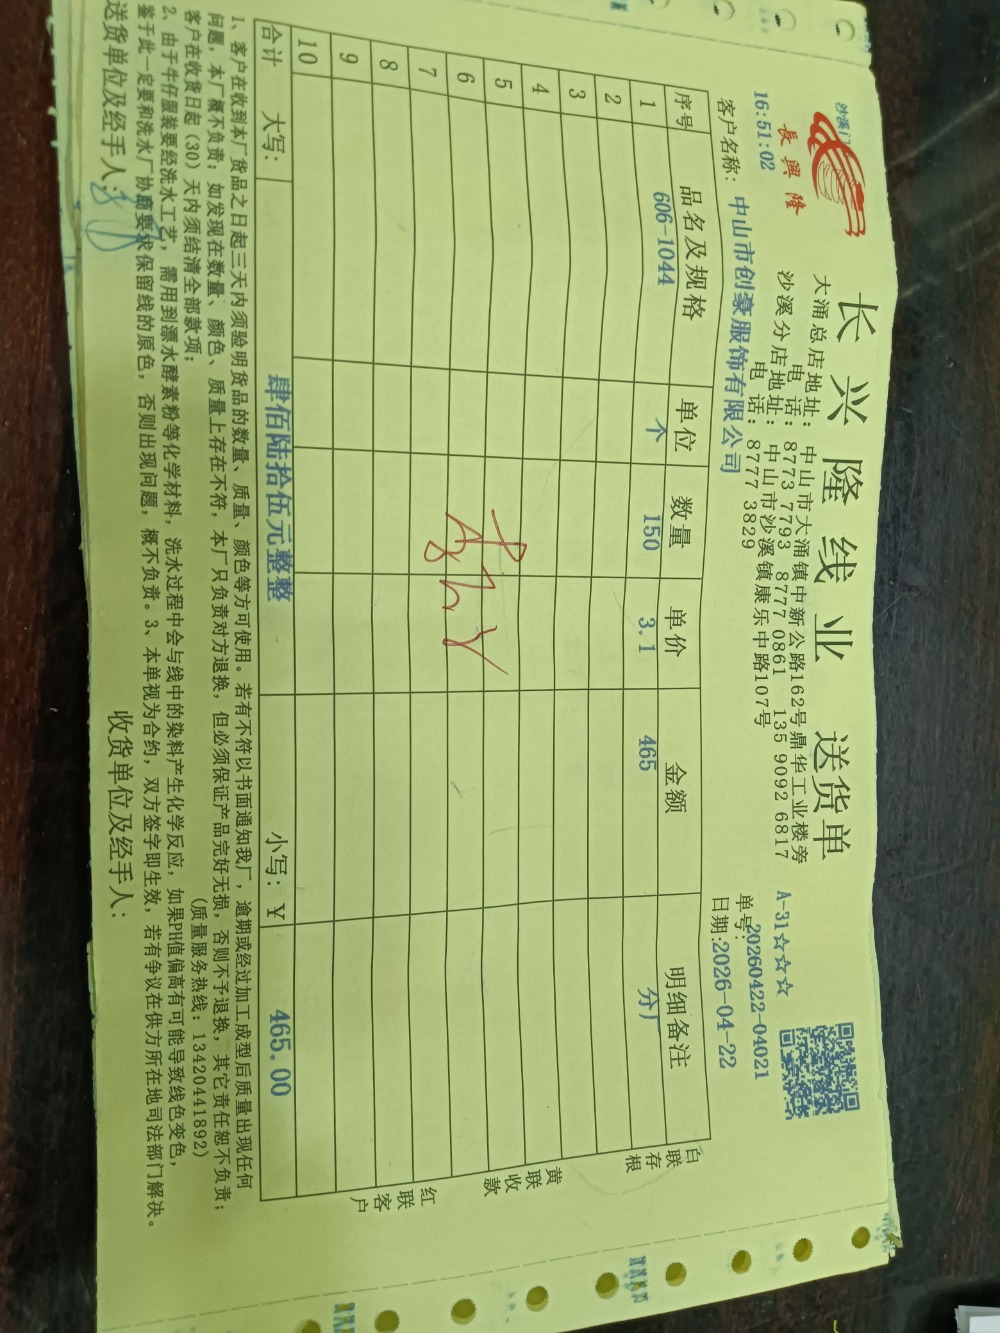 沙溪门
長興隆
16:51:02
长兴隆线业 送货单
大涌总店地址：中山市大涌镇中新公路162号鼎华工业楼旁
电话：8773 7793 8777 0861 135 9092 6817
沙溪分店地址：中山市沙溪镇康乐中路107号
电话：8777 3829
A-31☆☆☆
单号：20260422-04021
客户名称：中山市创豪服饰有限公司
日期:2026-04-22
序号 品名及规格 单位 数量 单价 金额 明细备注
1 606-1044 个 150 3.1 465 分厂
2
3
4
5
6
7
8
9
10
合计 大写：肆佰陆拾伍元整整 小写：¥ 465.00
白联存根
黄联收款
红联客户
1、客户在收到本厂货品之日起三天内须验明货品的数量、质量、颜色等方可使用。若有不符以书面通知我厂，逾期或经过加工成型后质量出现任何
问题，本厂概不负责；如发现在数量、颜色、质量上存在不符，本厂只负责对方退换，但必须保证产品完好无损，否则不予退换，其它责任恕不负责；
客户在收货日起（30）天内须结清全部款项； （质量服务热线：13420441892）
2、由于牛仔服装要经洗水工艺，需用到漂水酵素粉等化学材料，洗水过程中会与线中的染料产生化学反应，如果PH值偏高有可能导致线色变色，
鉴于此一定要和洗水厂协商要求保留线的原色，否则出现问题，概不负责。3、本单视为合约，双方签字即生效，若有争议在供方所在地司法部门解决。
送货单位及经手人：
收货单位及经手人：